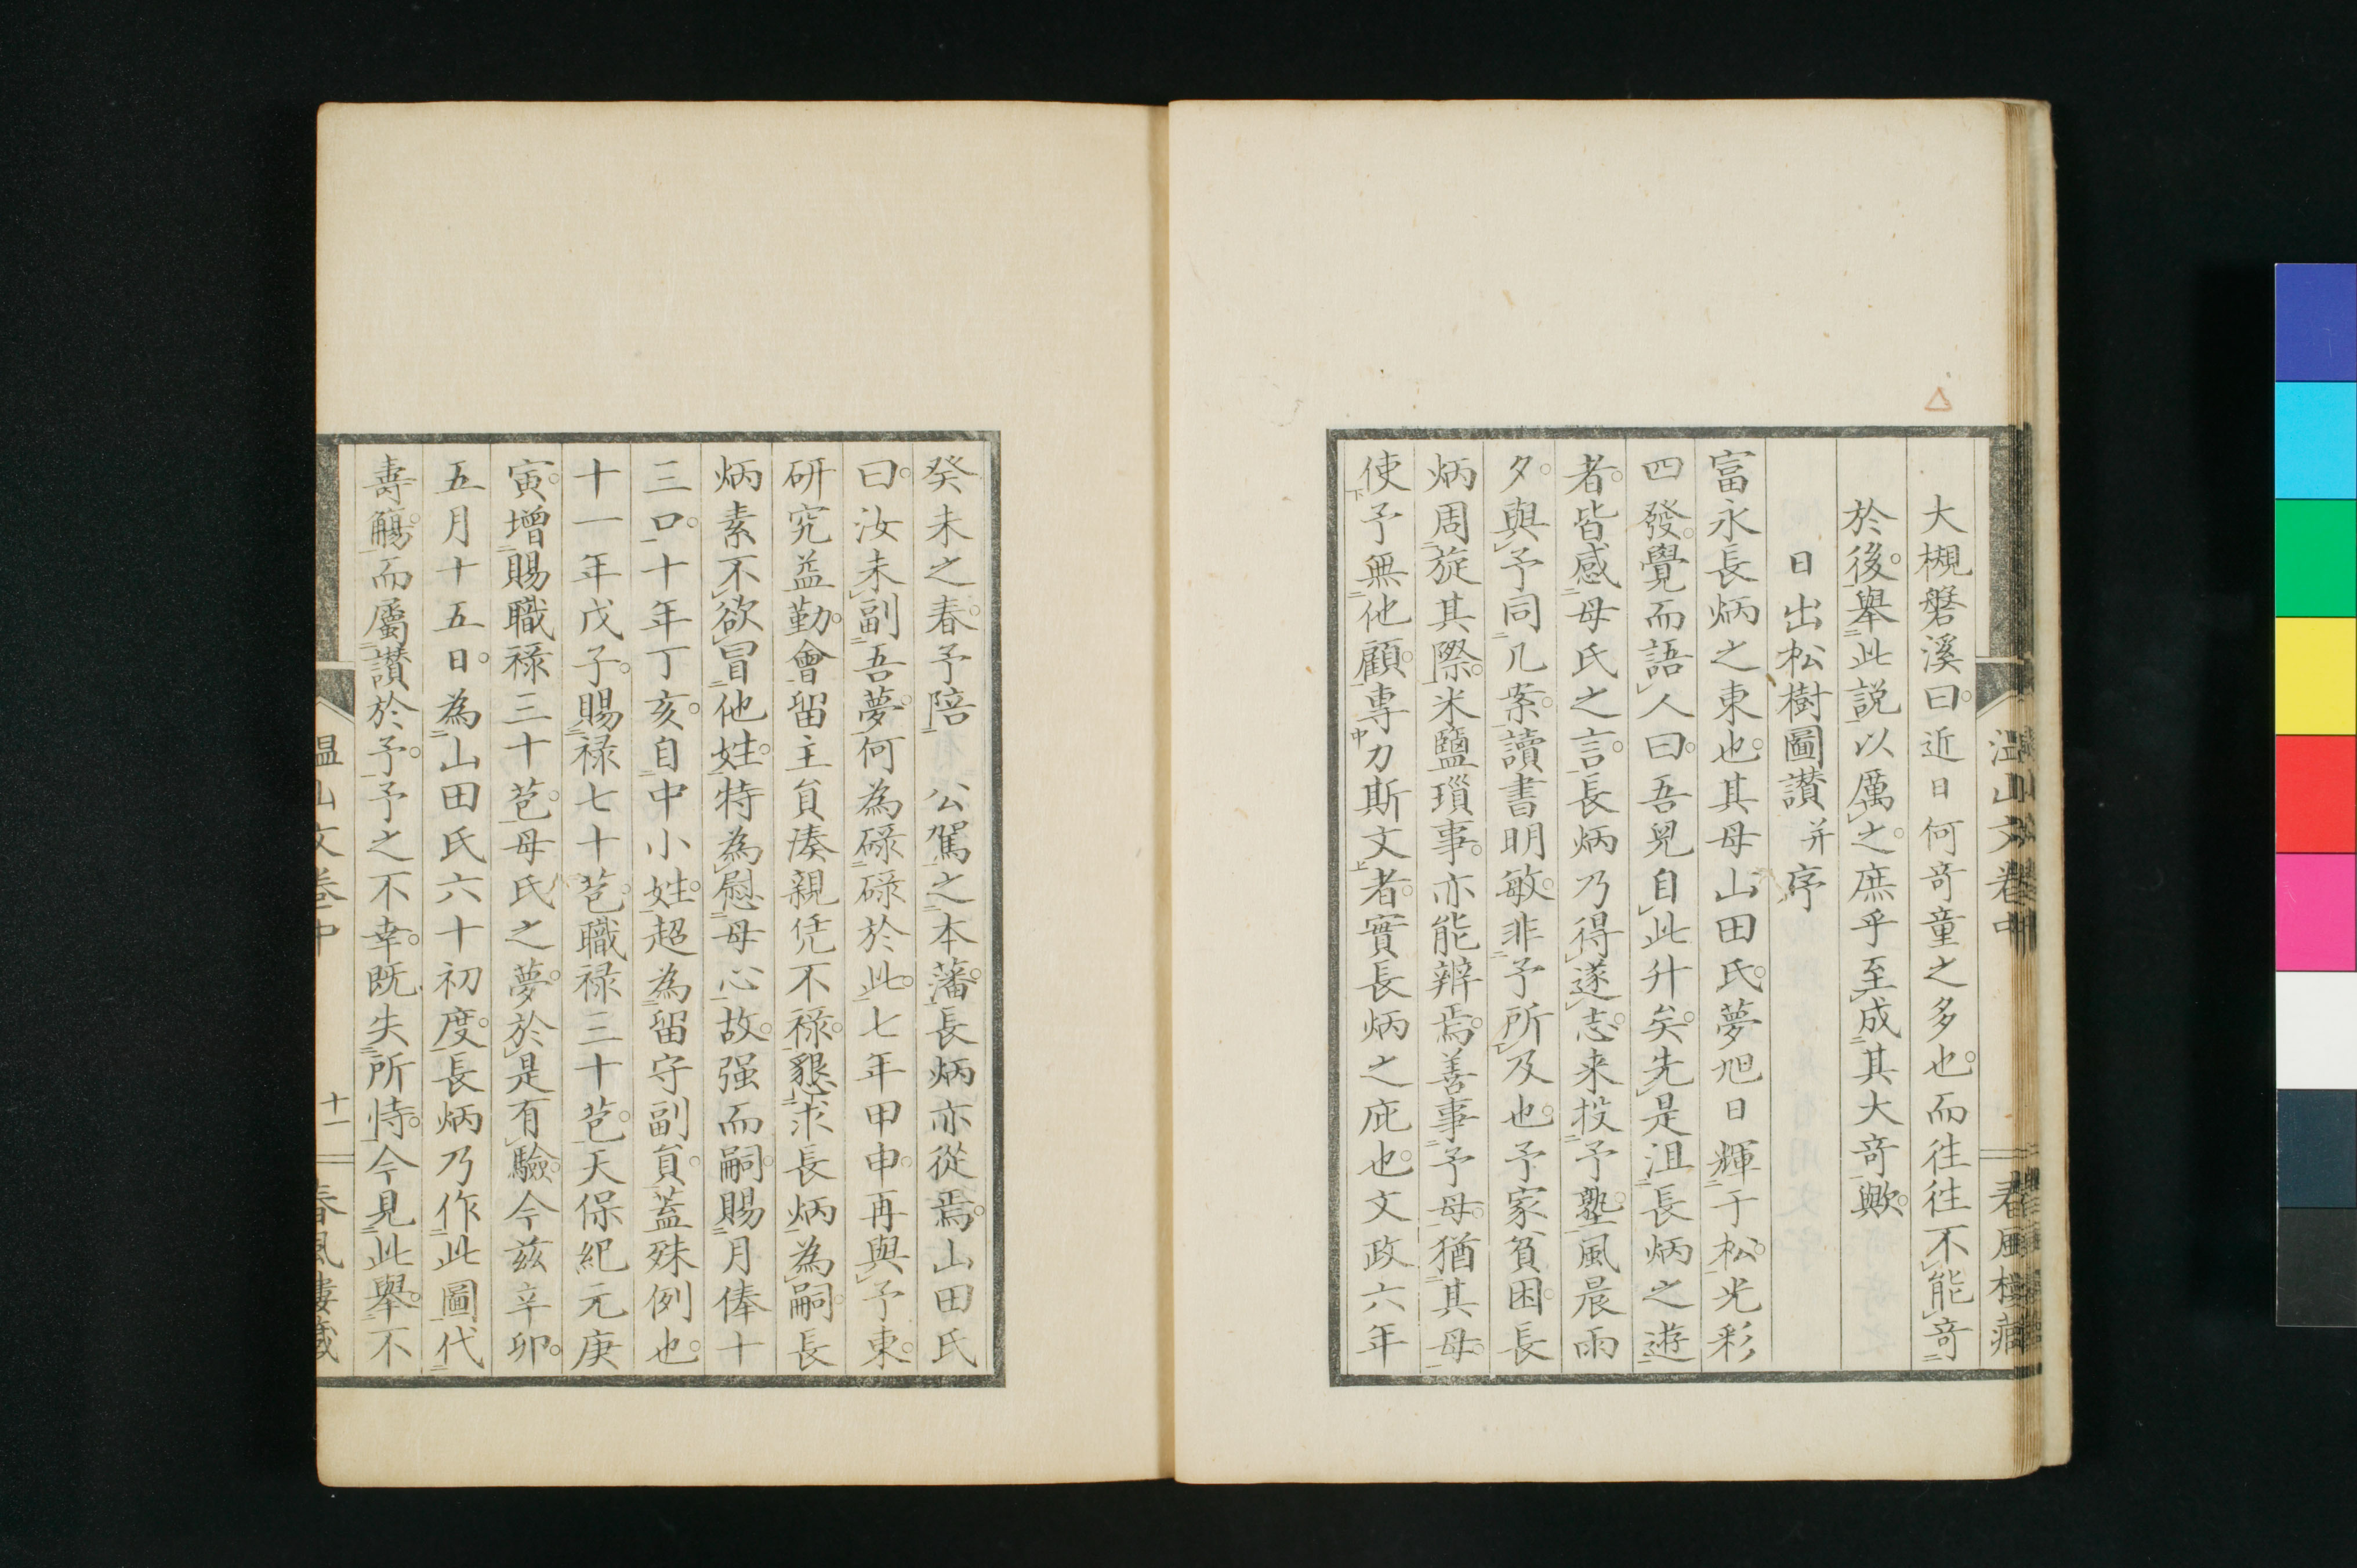 大槻磐溪曰近日何奇童之多也而往往不能奇
於後舉此説以厲之庶乎至成其大奇歟
日出松樹圖讃并序
富永長炳之東也其母山田氏夢旭日輝于松光彩
四發覺而語人曰吾兒自此升矣先是沮長炳之遊
者皆感母氏之言長炳乃得遂志来投予塾風晨雨
夕與予同几案讀書明敏非予所及也予家貧困長
炳周旋其際米鹽瑣事亦能辨焉善事予母猶其母
使予無他顧專力斯文者實長炳之庇也文政六年
癸未之春予陪 公駕之本藩長炳亦從焉山田氏
曰汝未副吾夢何為碌碌於此七年甲申再與予東
研究益勤會留主貟湊親凭不禄懇求長炳為嗣長
炳素不欲冒他姓特為慰母心故强而嗣賜月俸十
三口十年丁亥自中小姓超為留守副貟蓋殊例也
十一年戊子賜禄七十苞職禄三十苞天保紀元庚
寅增賜職禄三十苞母氏之夢於是有驗今兹辛卯
五月十五日為山田氏六十初度長炳乃作此圖代
壽觴而屬讃於予予之不幸既失所恃今見此舉不
温山文卷中
十一
春風樓藏